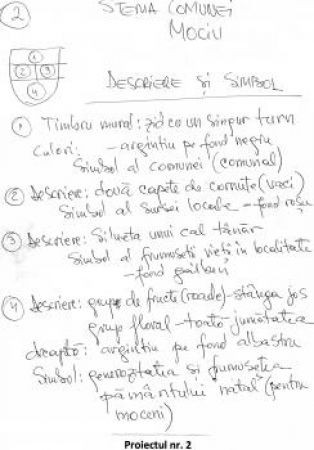 2
STEMA COMUNEI
MOCIU
1
2 3
4
DESCRIERE ȘI SIMBOL
1 Timbru mural: zid cu un singur turn
Culori: - argintiu pe fond negru
Simbol al comunei (comunal)
2 Descriere: două capete de cornute (vaci)
Simbol al sursei locale - fond roșu
3 Descriere: Silueta unui cal tânăr
Simbol al frumuseții vieții în localitate
- fond galben
4 Descriere: grup de fructe (roade) - stânga jos
grup floral - toată jumătatea
dreaptă: argintiu pe fond albastru
Simbol: generozitatea și frumusețea
pământului natal (pentru
moceni)
Proiectul nr. 2